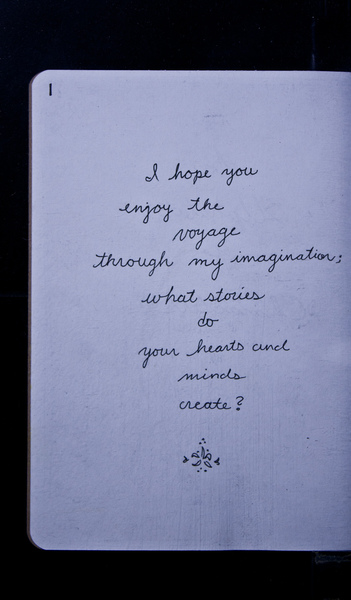 1
I hope you
enjoy the
voyage
through my imagination;
what stories
do
your hearts and
minds
create?